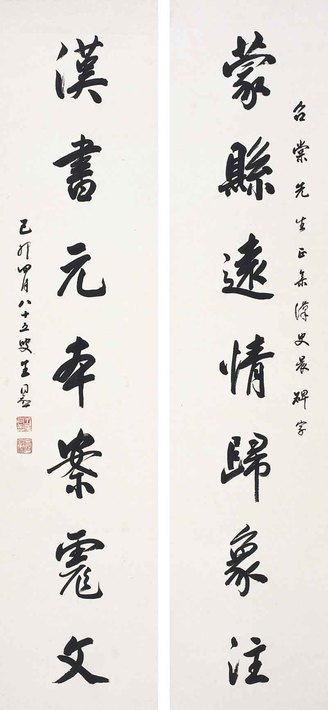 召棠先生正集漢史晨碑字
蒙縣遠情歸象注
漢書元本案虙文
己卯四月八十五叟王